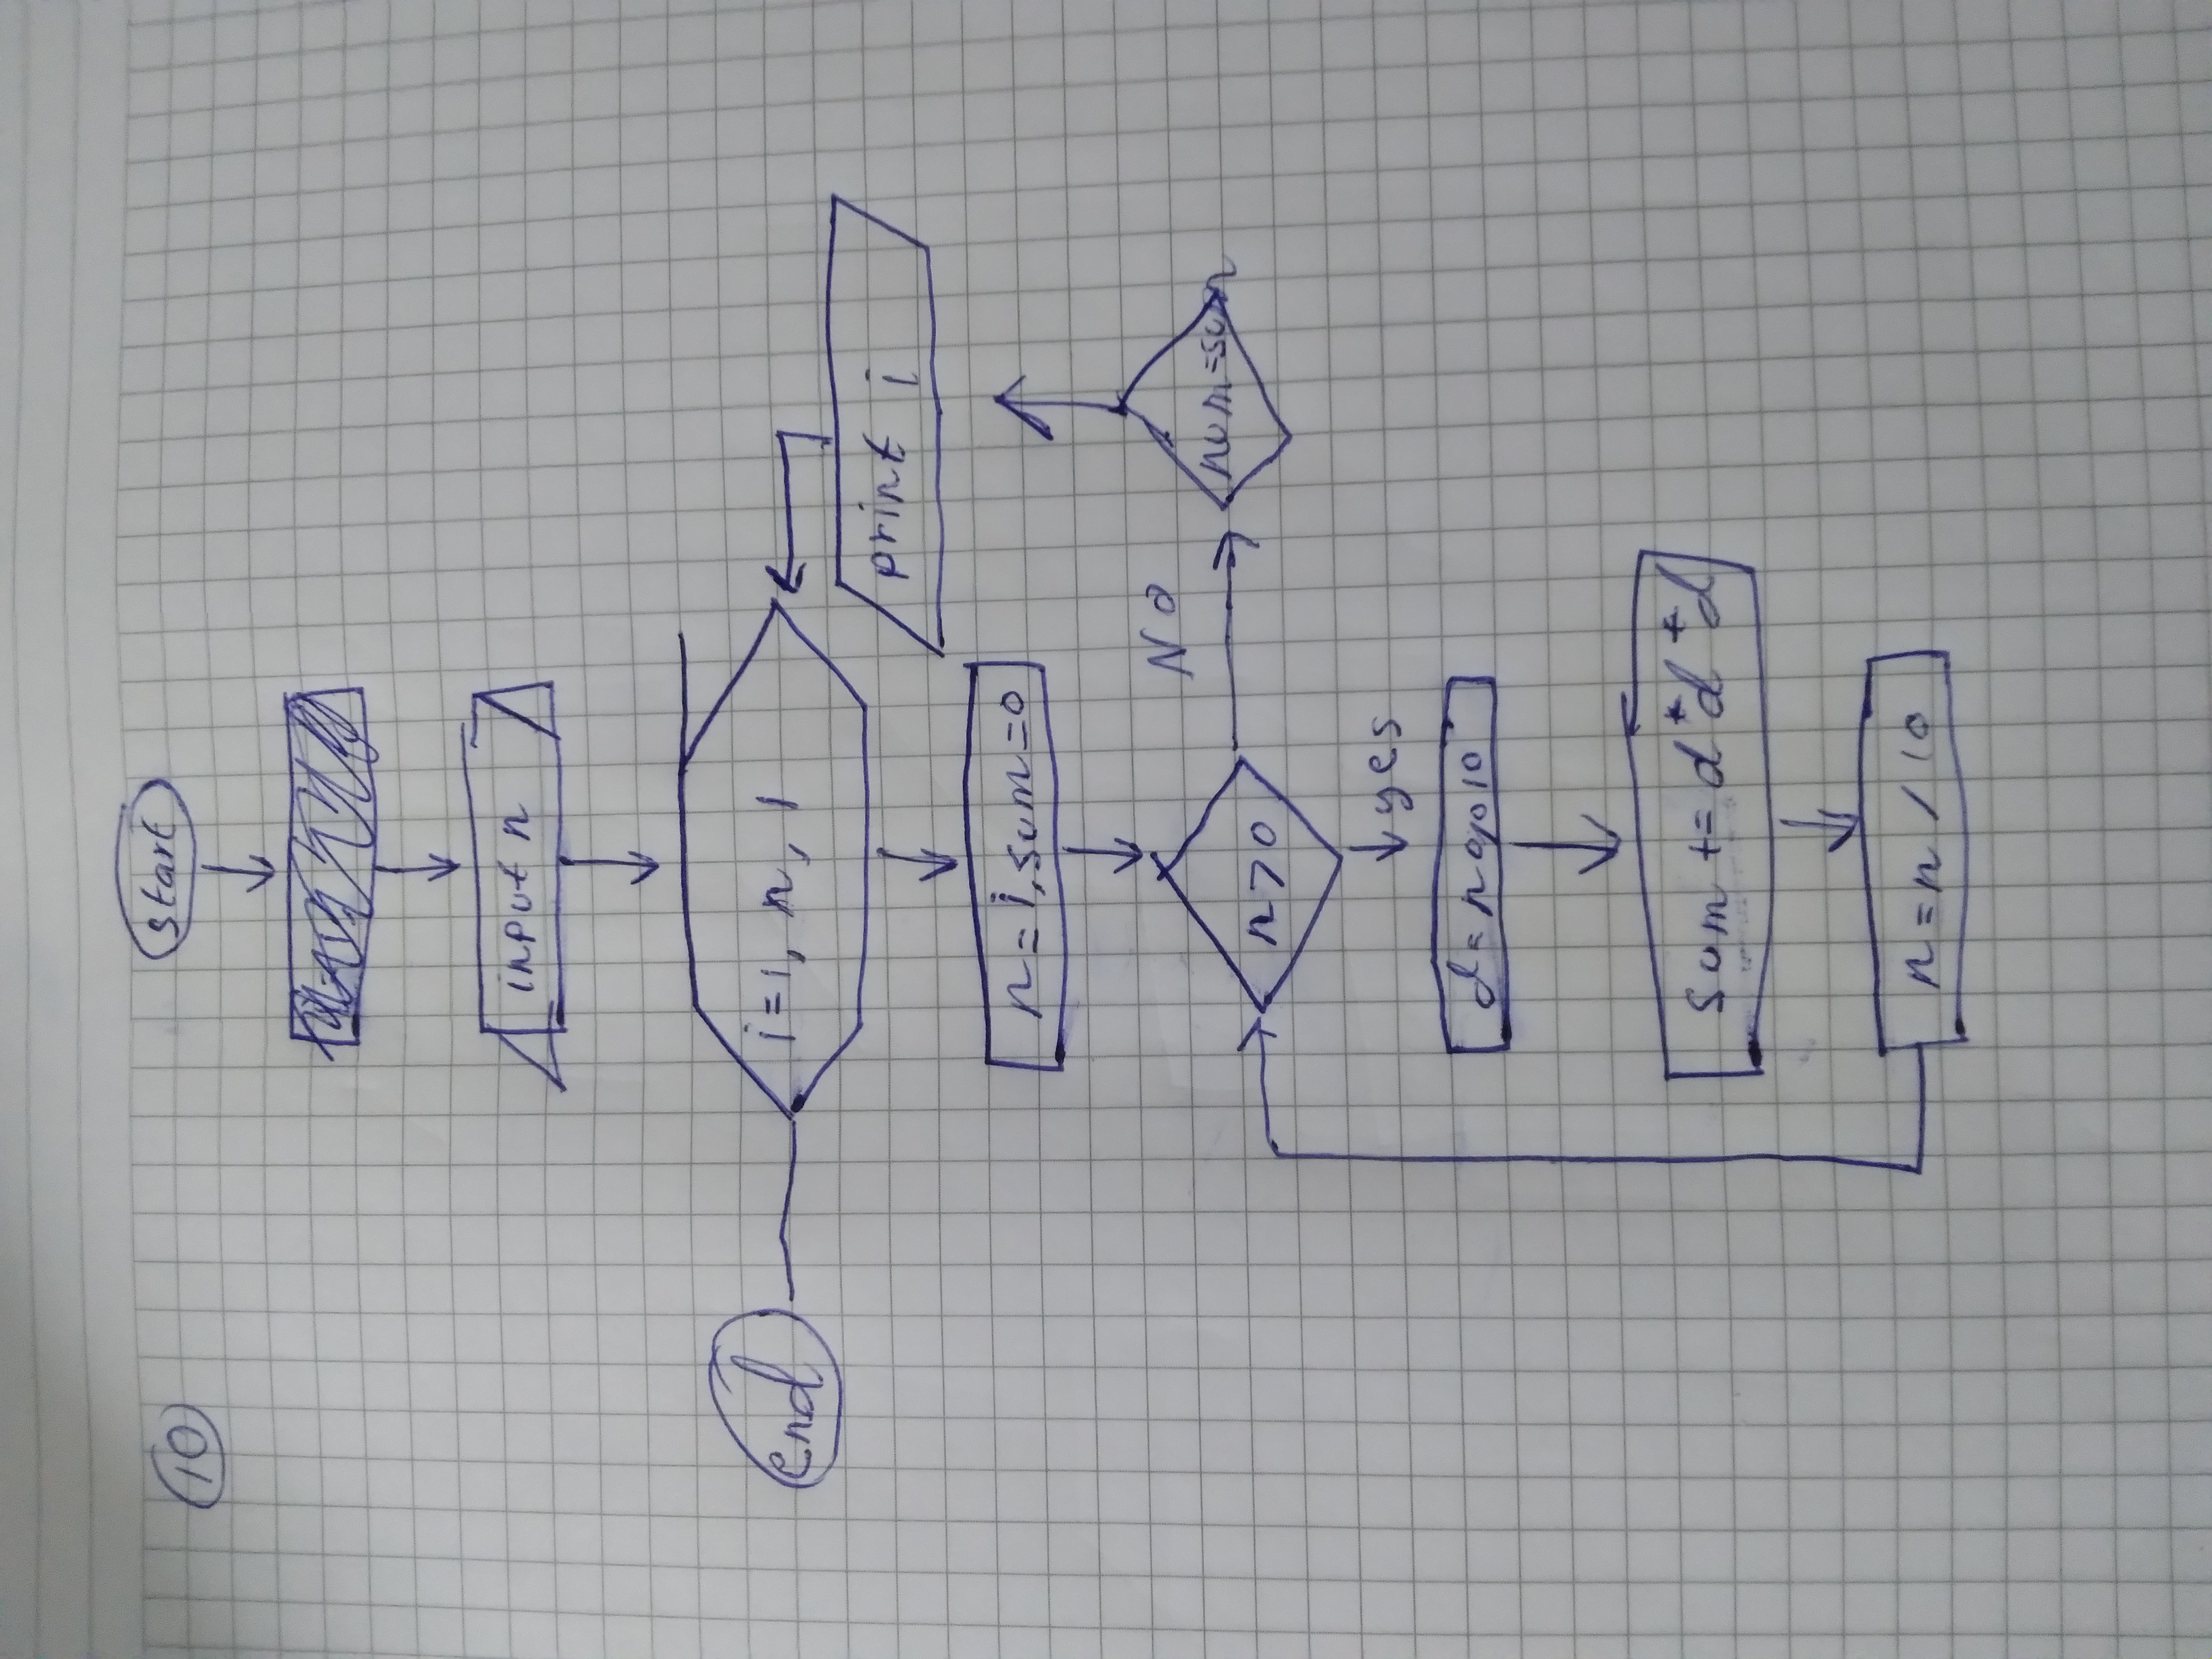 10
start
input n
i=1, n, 1
end
print i
n=i, sum=0
NO
num=sum
n>0
yes
d=n%10
sum += d*d*d
n=n/10